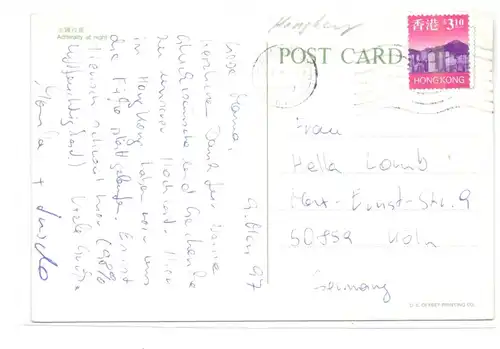 金鐘夜景
Admiralty at night
Hongkong
POST CARD
香港 $3.10
HONG KONG
9. Mai 97
Liebe Mama,
herzlichen Dank für Deine
Glückwünsche und Geschenke
zu unserer Hochzeit. Hier
in Hong Kong haben wir uns
die Füße platt gelaufen. Es ist
schwül (98%
Luftfeuchtigkeit) Viele Grüße
Frau
Hella Lomb
Max-Ernst-Str. 9
50859 Köln
Germany